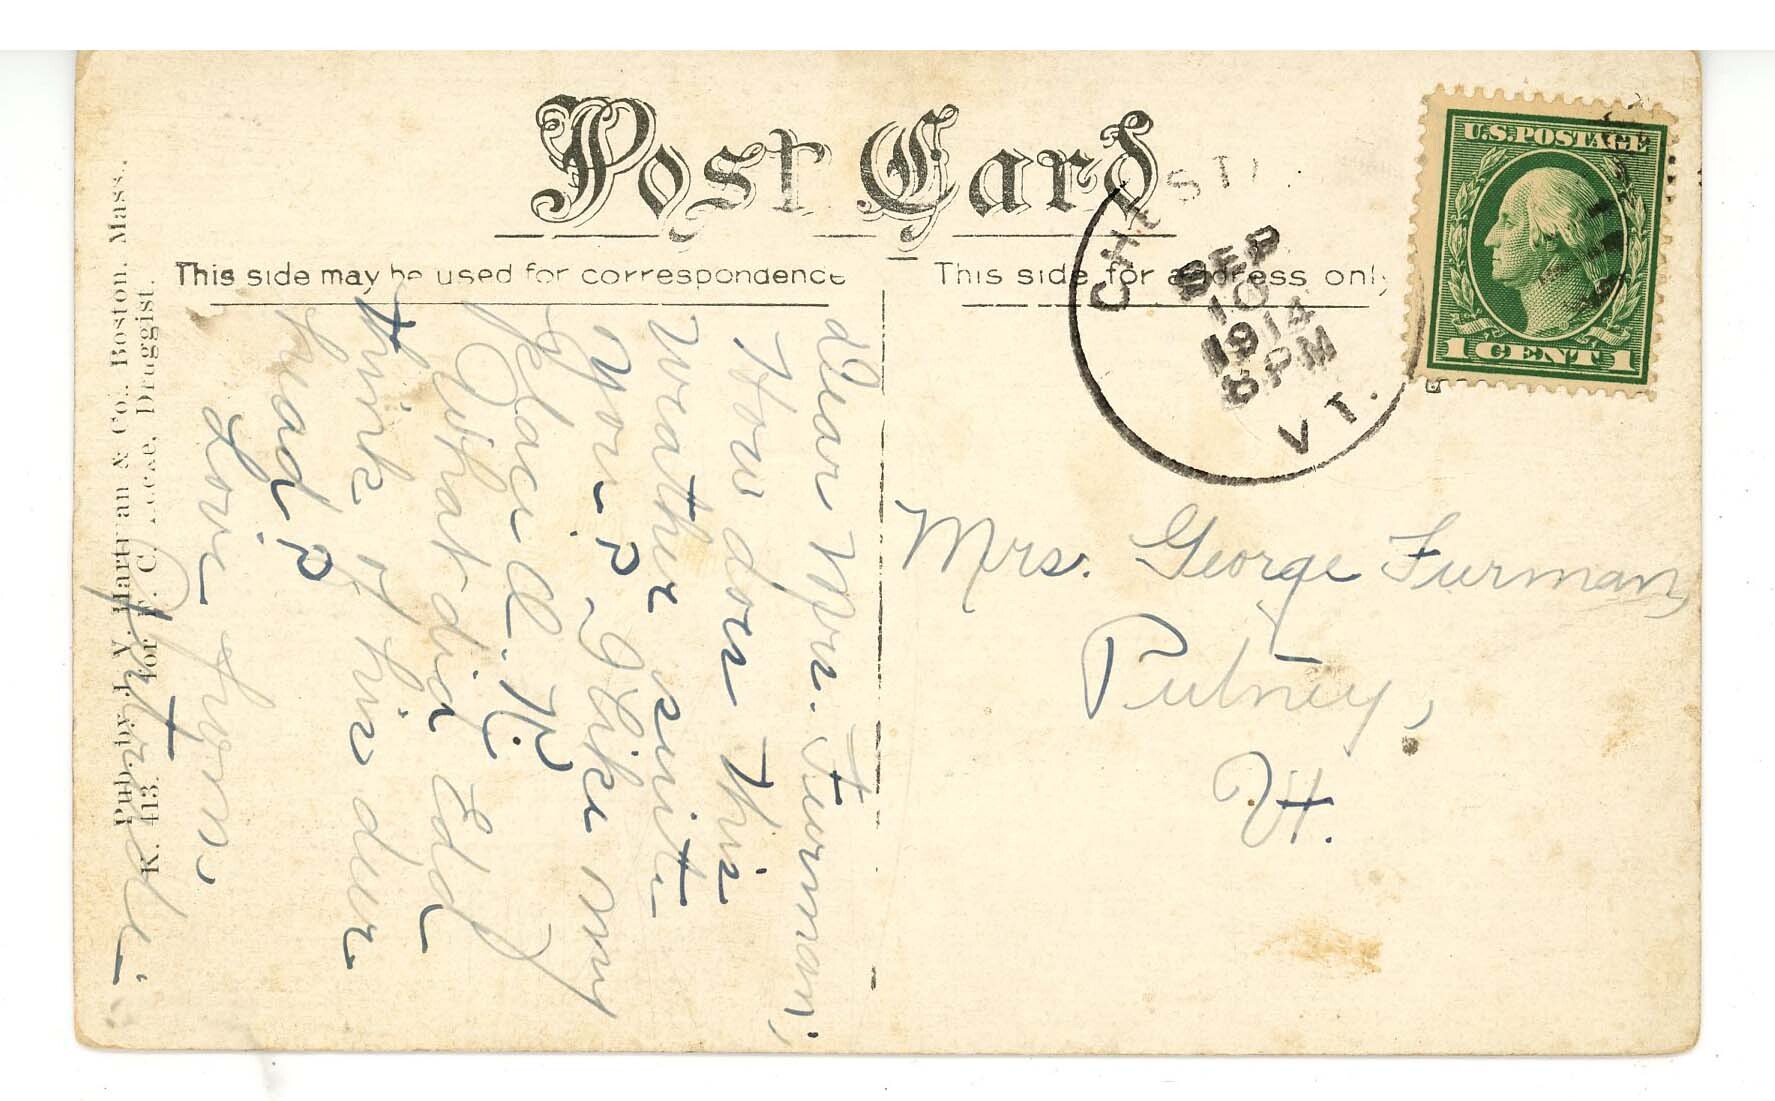 Post Card
This side may be used for correspondence
This side for address only
CHEST
SEP
10
1914
8 PM
VT.
U.S. POSTAGE
1 CENT 1
Mrs. George Furman,
Putney,
Vt.
Dear Mrs. Furman;
How does this
weather suite
you? I like my
place O.K.
What did Edd
think of his deer
head?
Love from,
Gertrude.
Pub. by J. V. Hartman & Co., Boston, Mass.
K. 413. For F. C. Druggist.